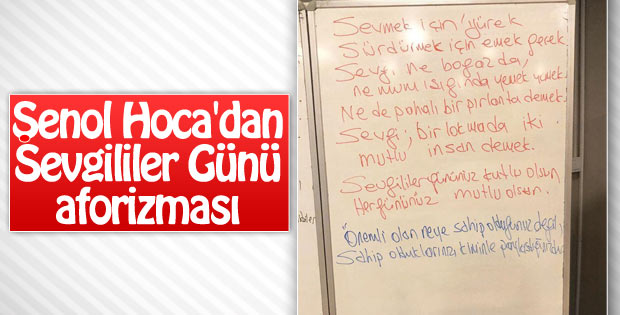 Şenol Hoca'dan
Sevgililer Günü
aforizması
Sevmek için yürek
Sürdürmek için emek gerek
Sevgi ne boğazda,
ne mum ışığında yemek yemek.
Ne de pahalı bir pırlanta demek.
Sevgi, bir lokmada iki
mutlu insan demek.
Sevgililer gününüz kutlu olsun
Hergününüz mutlu olsun.
"Önemli olan neye sahip olduğunuz değil,
Sahip olduklarınızı kiminle paylaştığınızdır